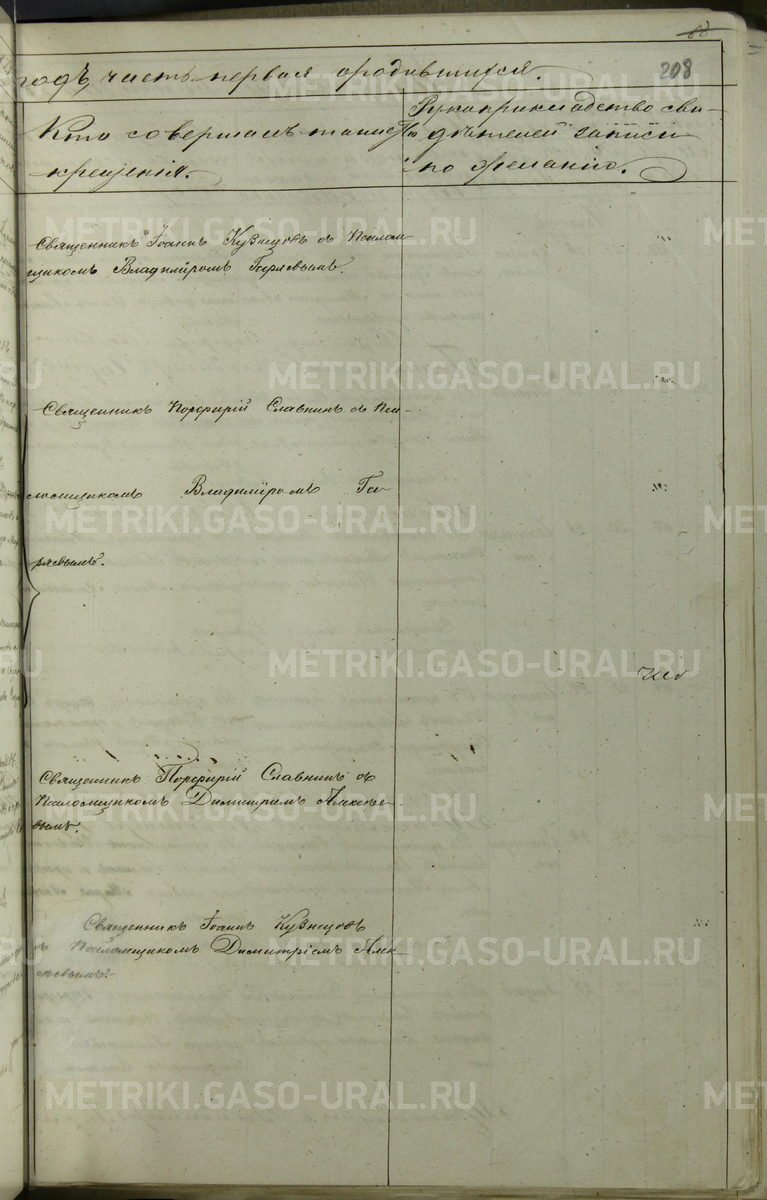 208
годъ, часть первая о родившихся.
Кто совершалъ таинство
крещенія.
Рукоприкладство сви-
дѣтелей записи
по желанію.
Священникъ Іоаннъ Кузнецовъ съ Псалом-
щикомъ Владиміромъ Гаряевымъ.
Священникъ Порфирій Славнинъ съ Пса-
ломщикомъ Владиміромъ Га-
ряевымъ.
Священникъ Порфирій Славнинъ съ
Псаломщикомъ Димитріемъ Алексѣе-
вымъ.
Священникъ Іоаннъ Кузнецовъ
съ Псаломщикомъ Димитріемъ Алек-
сѣевымъ.
METRIKI.GASO-URAL.RU